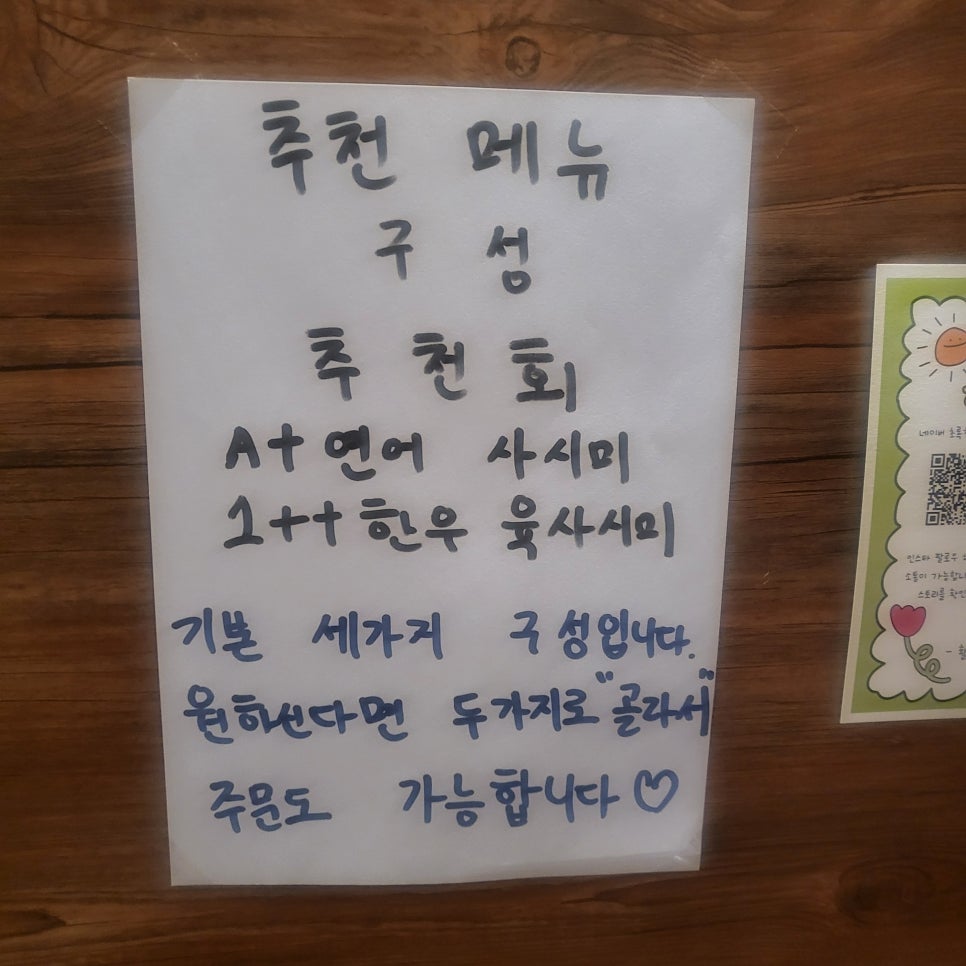 추천 메뉴
구 성
추 천 회
A+ 연어 사시미
1++ 한우 육사시미
기본 세가지 구성입니다.
원하신다면 두가지로 "골라서"
주문도 가능합니다♡
네이버
인스타 팔로우
소통이
스토리를